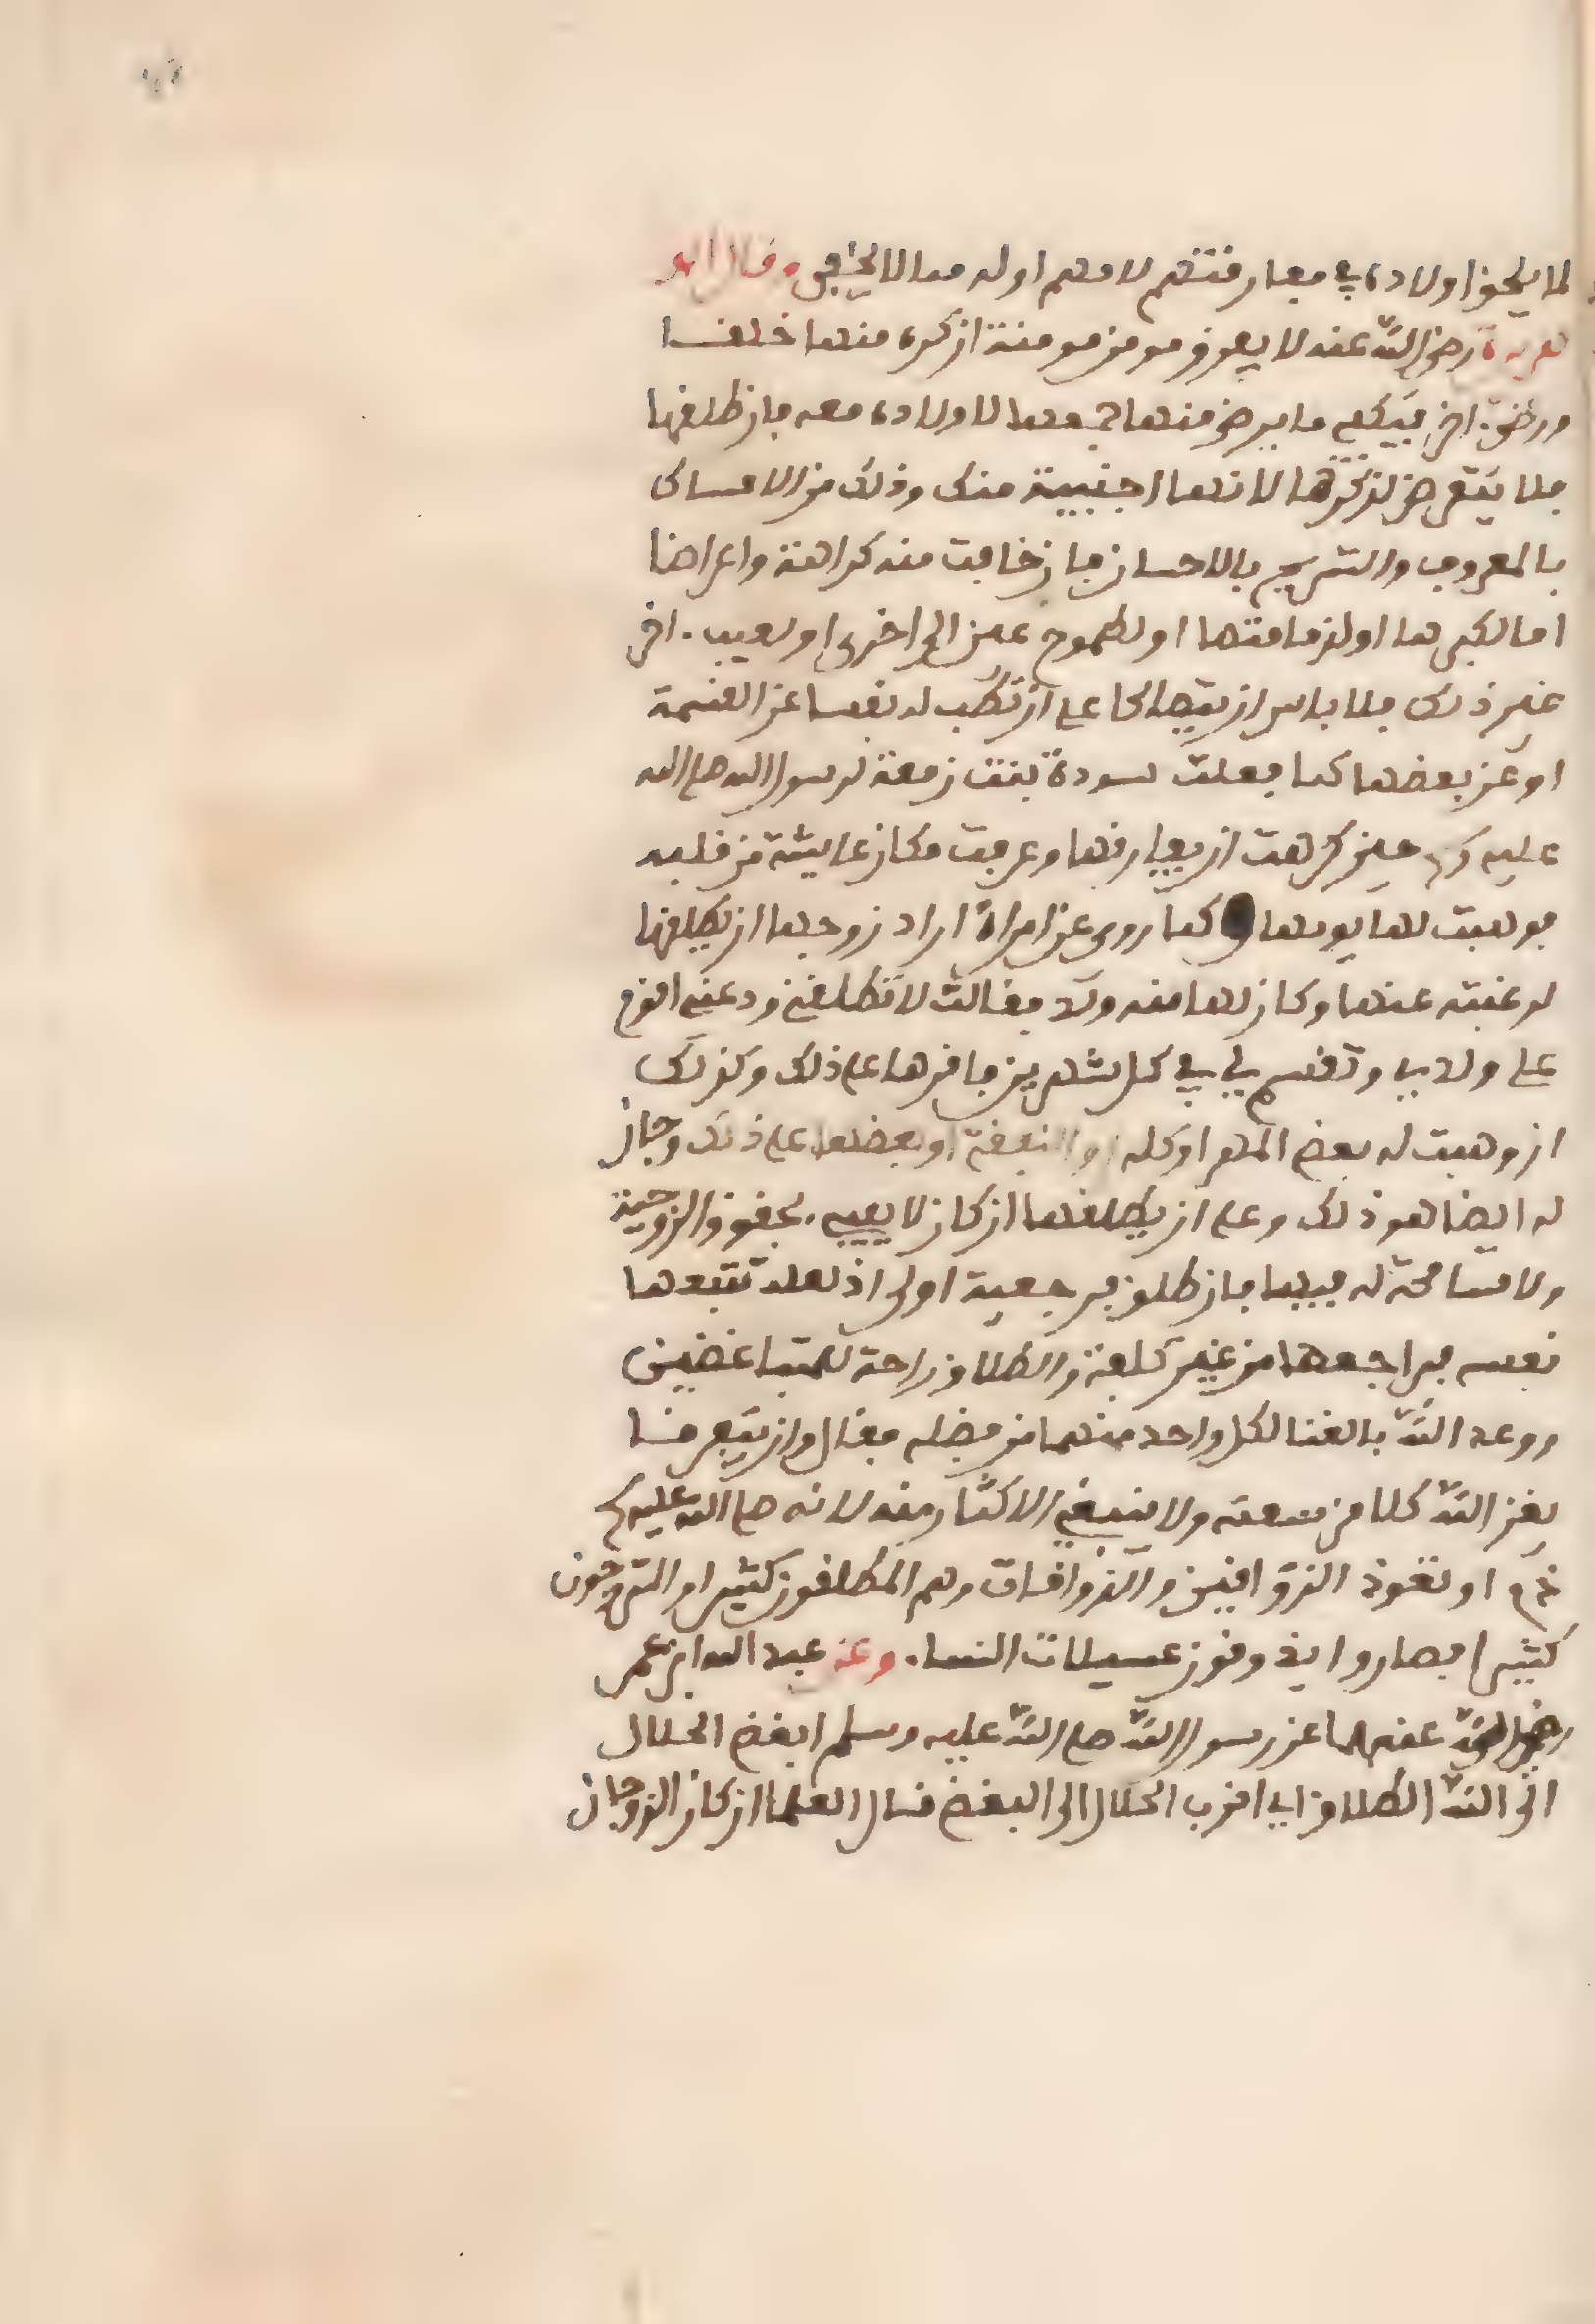 لما يلحق اولاده في مفارقتهم لامهم اوله مما لا يخفى وقال ابو
هريرة رضي الله عنه لا يفرق مومن مومنة ان كره منها خلقا
ورضي اخر فيكفي ما يرضى منها جمعها لاولاده معه فان طلقها
فلا يتعرض لذكرها لانها اجنبية منك وذلك من الامساك
بالمعروف والتسريح بالاحسان فان خافت منه كراهة واعراضا
اما لكبرها او لزمانتها او لطموح عين الى اخرى او لعيب اخر
غير ذلك فلا باس ان يتصالحا على ان تطيب له نفسا عن القسمة
او عن بعضها كما فعلت سودة بنت زمعة لرسول الله صلى الله
عليه وسلم حين كرهت ان يفارقها وعرفت مكان عايشة من قلبه
فوهبت لها يومها وكما روي عن امراة اراد زوجها ان يطلقها
لرغبته عنها وكان لها منه ولد فقالت لا تطلقني ودعني اقوم
على ولدي وتقسم لي في كل شهرين فاقرها على ذلك وكذلك
ان وهبت له بعض المهر او كله او النفقة او بعضها على ذلك وجاز
له ايضا هو ذلك وعلى ان يطلقها ان كان لا يفي بحقوق الزوجية
ولا مسامحة له فيها فان طلق فرجعية اولى اذ لعله تتبعها
نفسه فيراجعها من غير كلفة والطلاق راحة للمتباغضين
ووعد الله بالغنا لكل واحد منهما من فضله فقال وان يتفرقا
يغن الله كلا من سعته ولا ينبغي الاكثار منه لانه صلى الله عليه وسلم
ذم او نقوذ الذواقين والذواقات وهم المطلقون كثيرا والمتزوجون
كثيرا فصاروا يذوقون عسيلات النسا. وعن عبد الله ابن عمر
رضي الله عنهما عن رسول الله صلى الله عليه وسلم ابغض الحلال
الى الله الطلاق اي اقرب الحلال الى البغض قال العلما ان كان الزوجان